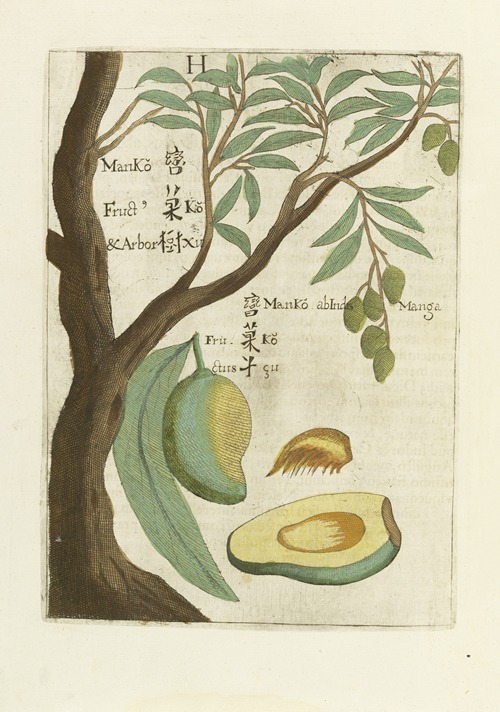 H
Mankŏ 蠻
Fruct⁹ 菓 Kŏ
& Arbor 樹 xu
蠻 Mankŏ ab Indis Manga
Fru- 菓 Kŏ
ctus çu